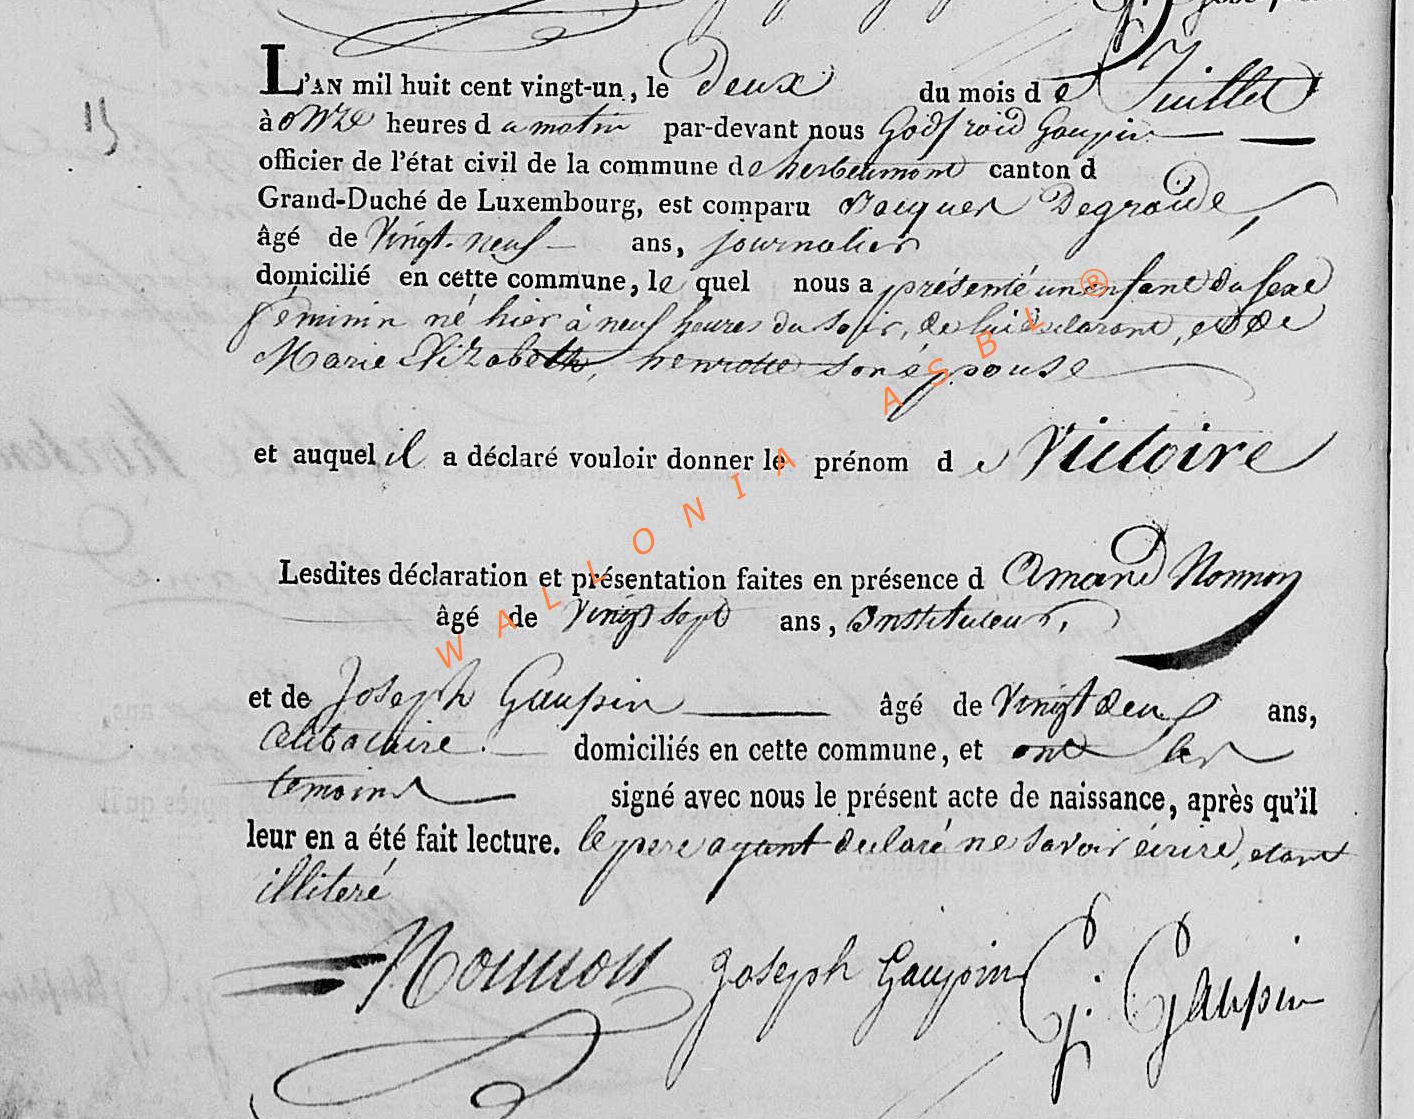 15
L'AN mil huit cent vingt-un, le deux du mois de Juillet
à onze heures du matin par-devant nous Godfroid Gaupin
officier de l'état civil de la commune de herbeumont canton d
Grand-Duché de Luxembourg, est comparu Jacques Degraide,
âgé de Vingt-neuf ans, journalier
domicilié en cette commune, le quel nous a présenté un enfant du sexe
féminin né hier à neuf heures du soir, de lui déclarant, et de
Marie Elizabeth, henrotte son épouse
et auquel il a déclaré vouloir donner le prénom de Victoire
Lesdites déclaration et présentation faites en présence d Amand Nonnon
âgé de Vingt sept ans, Instituteur,
et de Joseph Gaupin âgé de Vingt deux ans,
celibataire domiciliés en cette commune, et ont les
temoins signé avec nous le présent acte de naissance, après qu'il
leur en a été fait lecture. le pere ayant declaré ne savoir écrire, etant
illiteré
Nonnon Joseph Gaupin G. Gaupin
WALLONIA ASBL ®